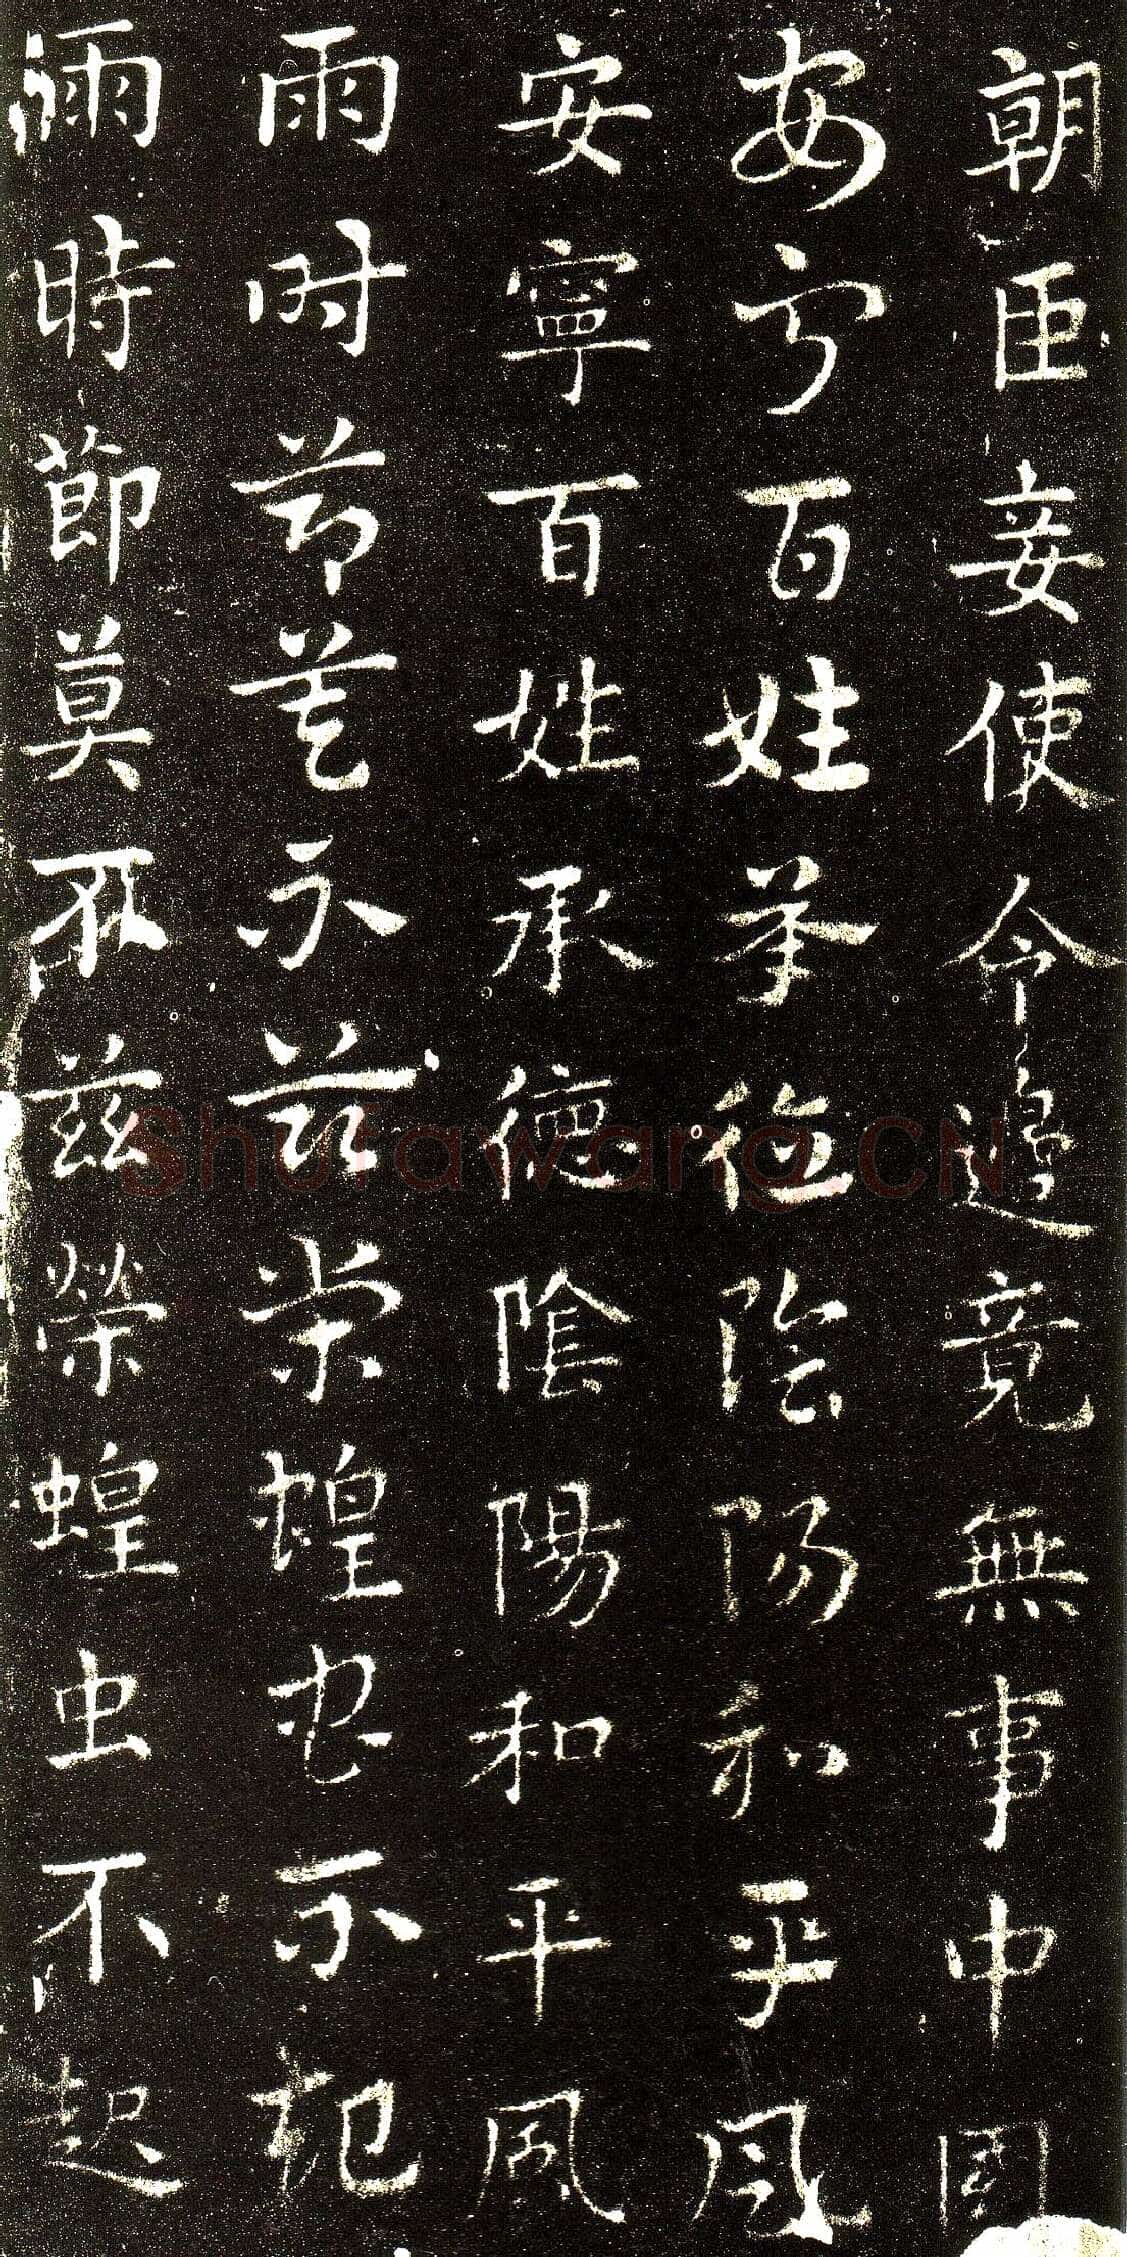 朝臣妾使令邊竟無事中國
安寧百姓承德陰陽和平風
安寧百姓承德陰陽和平風
雨時節莫不茲榮蝗虫不起
雨時節莫不茲榮蝗虫不起
Shufawang.CN